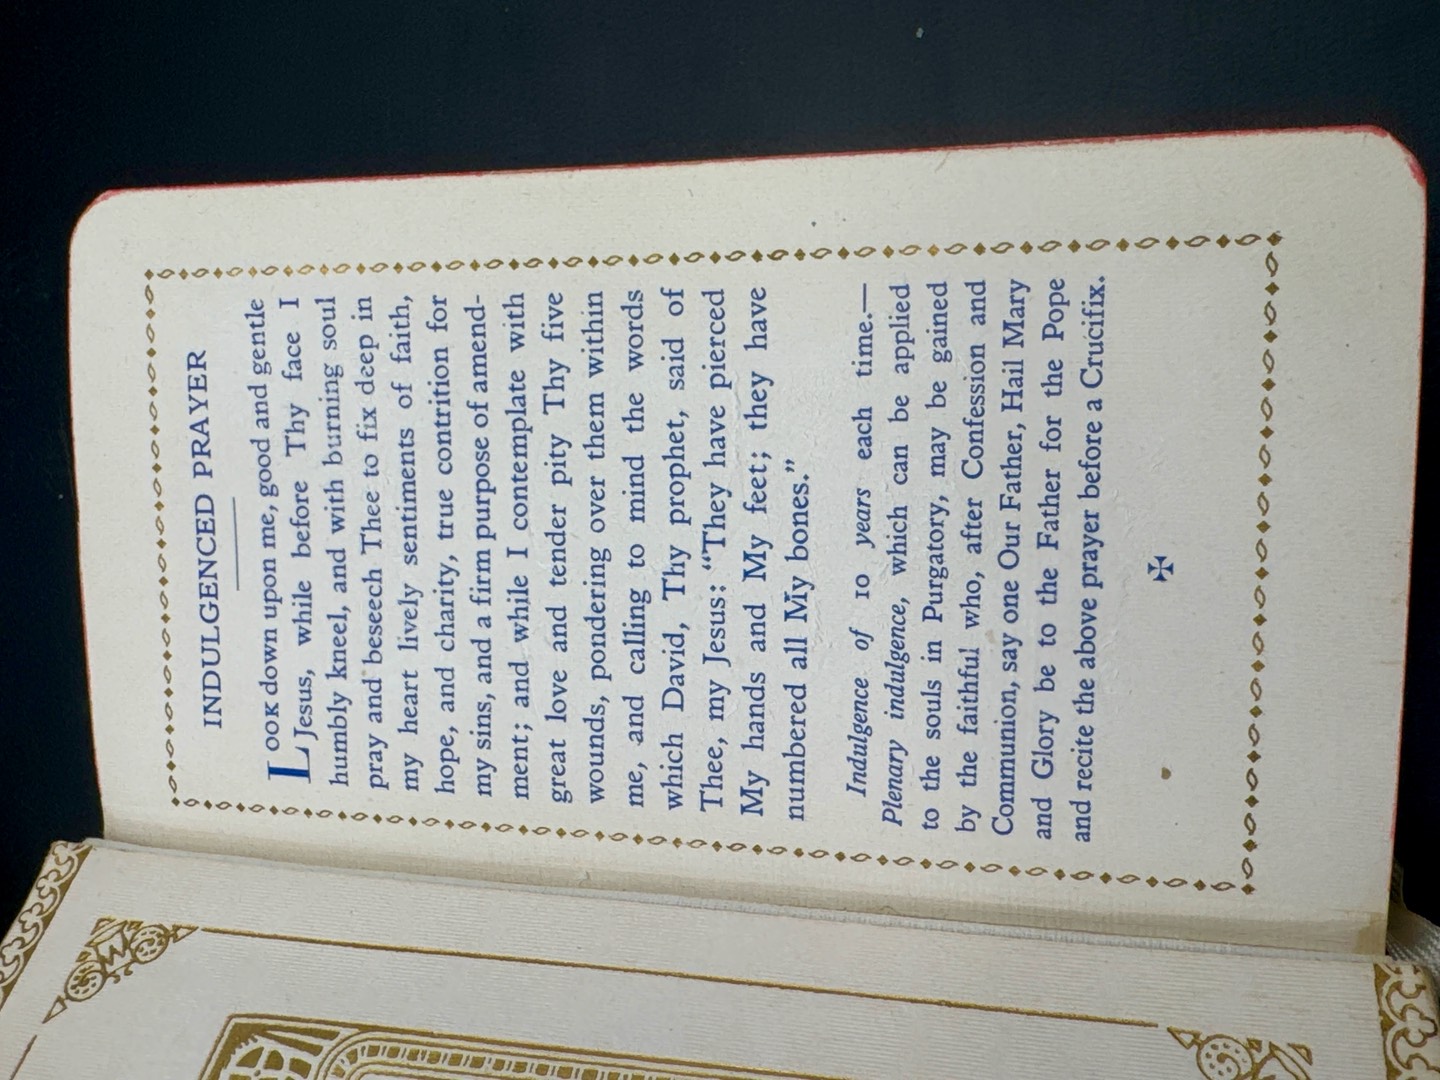 INDULGENCED PRAYER
LOOK down upon me, good and gentle
Jesus, while before Thy face I
humbly kneel, and with burning soul
pray and beseech Thee to fix deep in
my heart lively sentiments of faith,
hope, and charity, true contrition for
my sins, and a firm purpose of amend-
ment; and while I contemplate with
great love and tender pity Thy five
wounds, pondering over them within
me, and calling to mind the words
which David, Thy prophet, said of
Thee, my Jesus: “They have pierced
My hands and My feet; they have
numbered all My bones.”
Indulgence of 10 years each time.—
Plenary indulgence, which can be applied
to the souls in Purgatory, may be gained
by the faithful who, after Confession and
Communion, say one Our Father, Hail Mary
and Glory be to the Father for the Pope
and recite the above prayer before a Crucifix.